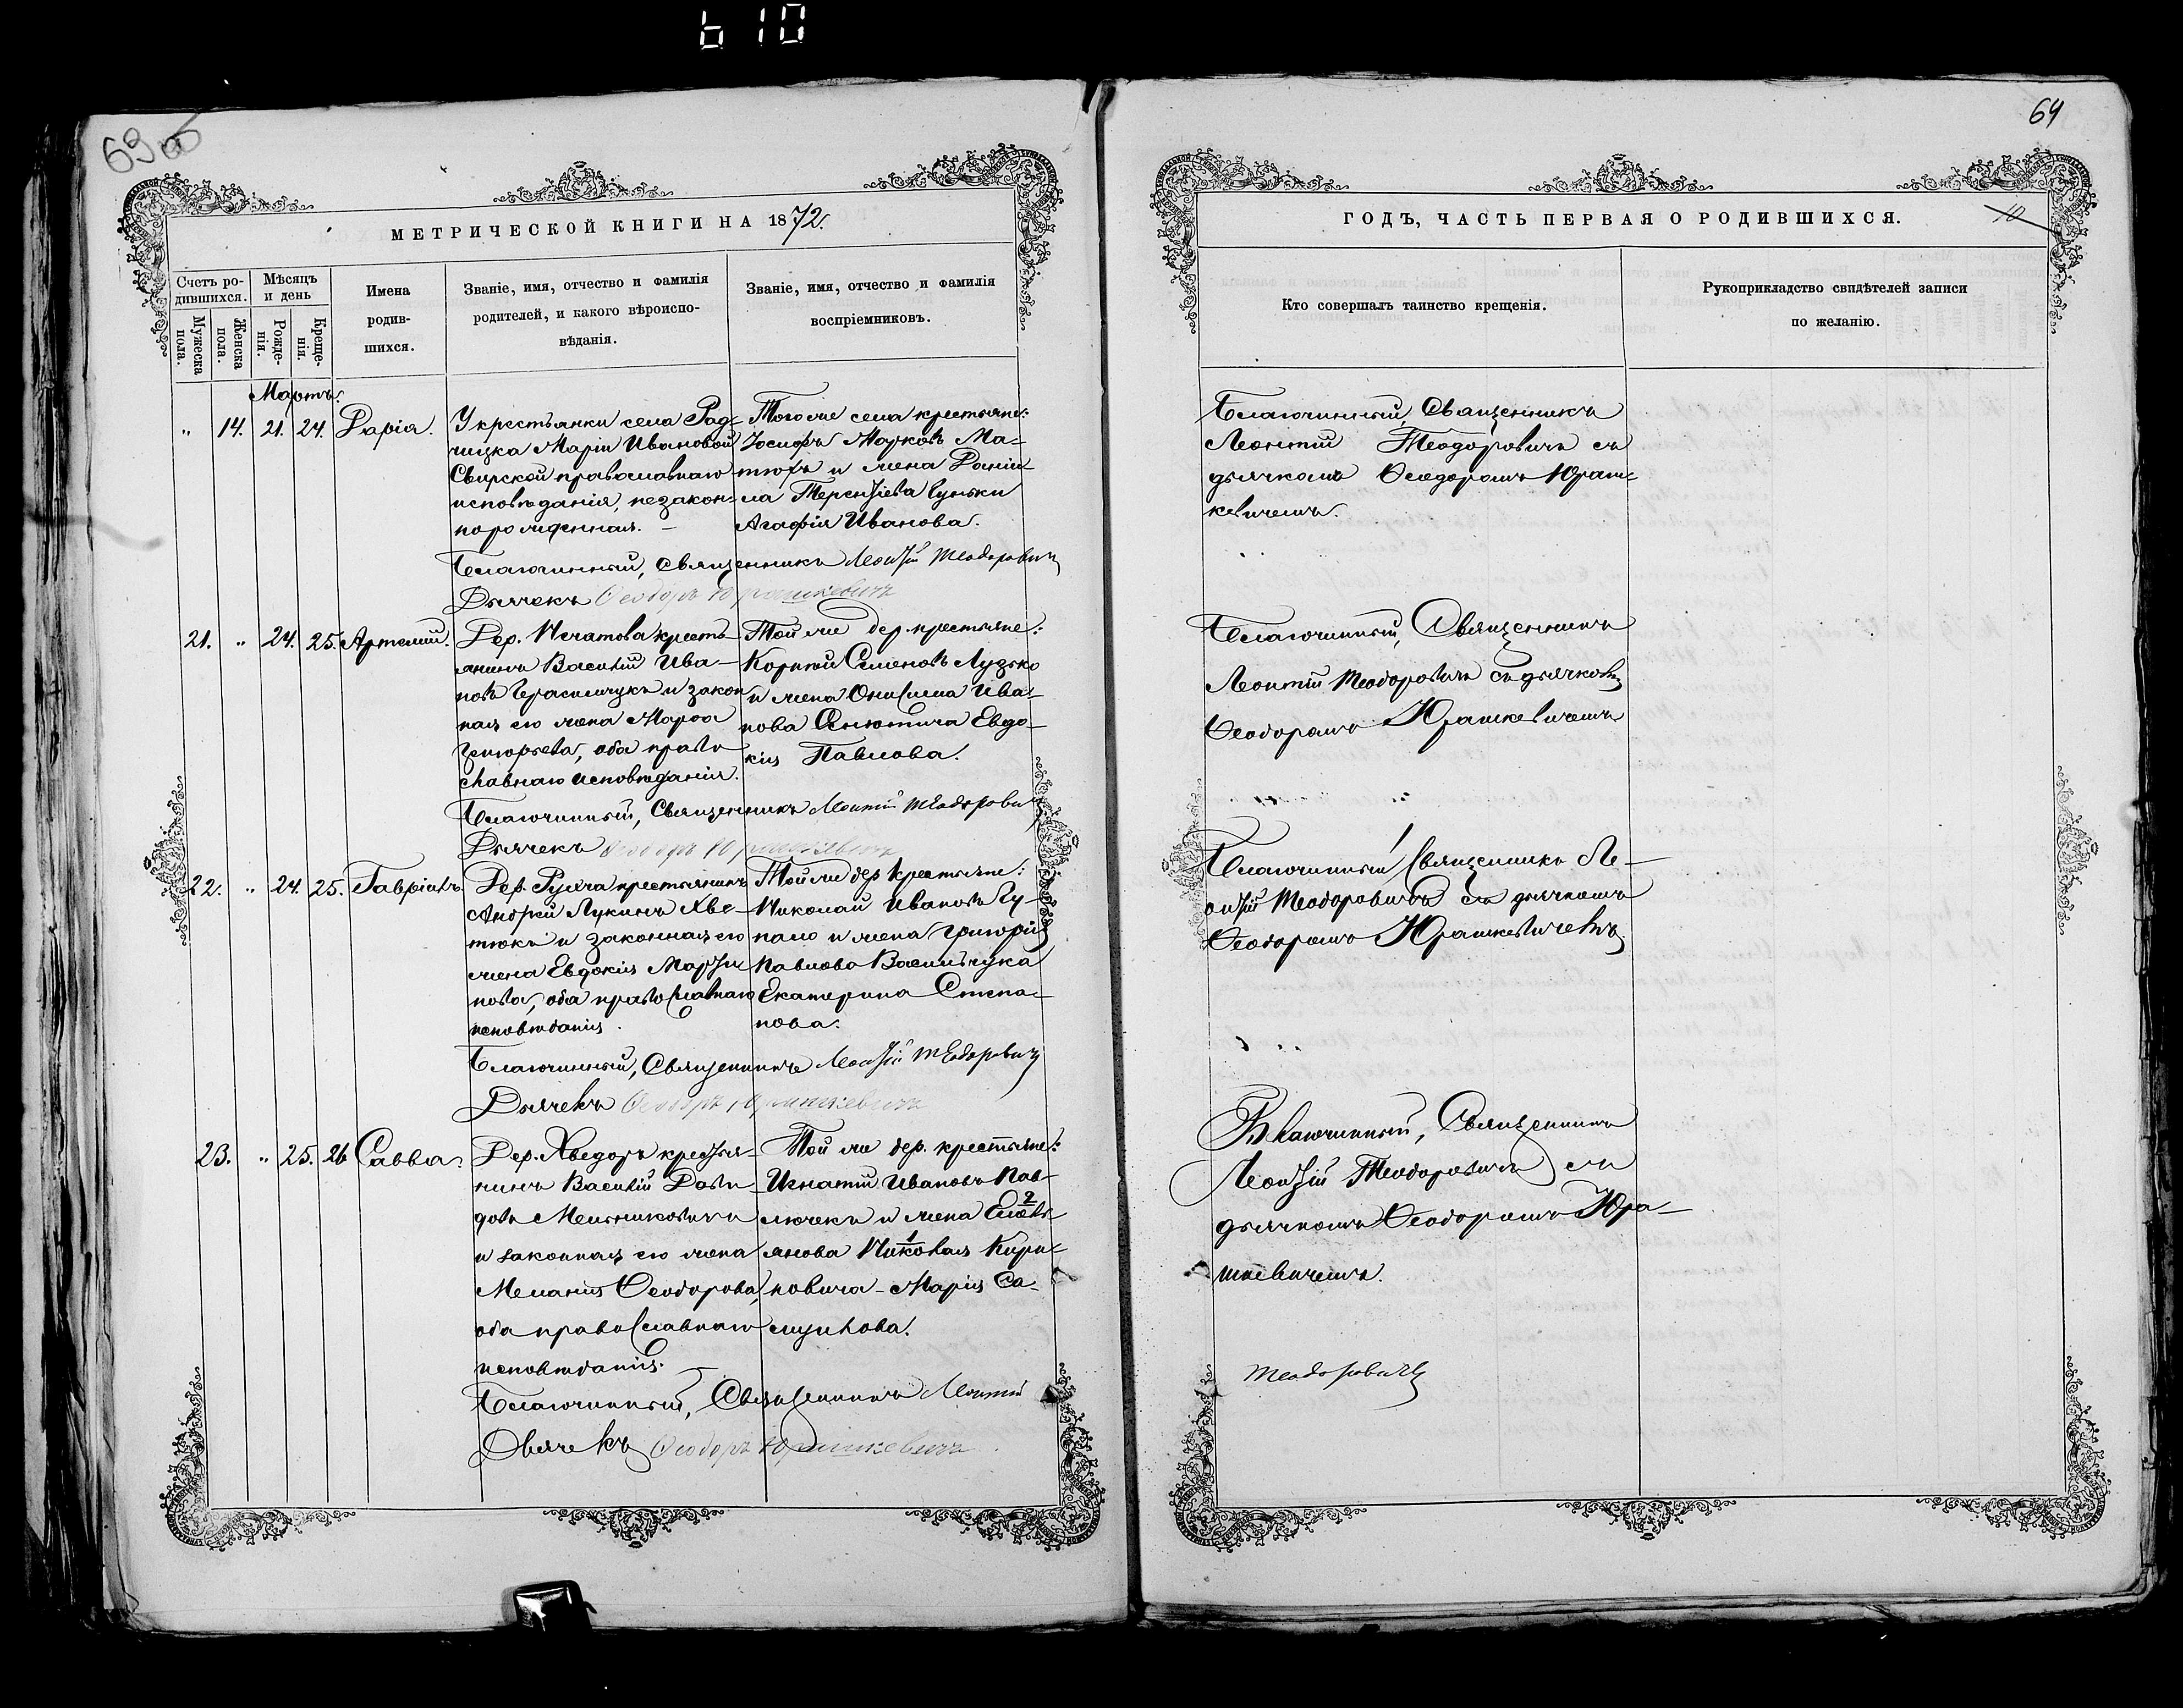 010
69 об
64
МЕТРИЧЕСКОЙ КНИГИ НА 1872.
Счетъ ро-
дившихся.
Мужеска
пола.
Женска
пола.
Мѣсяцъ
и день
Рожде-
нія.
Креще-
нія.
Имена
родив-
шихся.
Званіе, имя, отчество и фамилія
родителей, и какого вѣроиспо-
вѣданія.
Званіе, имя, отчество и фамилія
воспріемниковъ.
Мартъ.
„ 14. 21. 24. Дарія.
У крестьянки села Рад-
чицка Маріи Ивановой
Свирской православнаго
исповѣданія, незакон-
норожденная. –
Того же села крестьяне:
Іосифъ Марковъ Ма-
тюхъ и жена Дании-
ла Терентіева Гуньки
Агафія Иванова.
Благочинный, Священникъ Леонтій Теодоровичъ
Дьячекъ Ѳеодоръ Юрашкевичъ
21. „ 24. 25. Артемій.
Дер. Мчатова кресть-
янинъ Василій Ива-
новъ Герасимчукъ и закон
ная его жена Марѳа
Григорьева, оба право
славнаго исповѣданія.
Той же дер. крестьяне:
Корнилій Семеновъ Лудзко
и жена Онисима Ива-
нова Сенютича Евдо-
кія Павлова.
Благочинный, Священникъ Леонтій Теодоровичъ
Дьячекъ Ѳеодоръ Юрашкевичъ
22. „ 24. 25. Гавріилъ.
Дер. Рухча крестьянинъ
Андрей Лукинъ Хве-
тюкъ и законная его
жена Евдокія Марти
нова, оба православнаго
исповѣданія.
Той же дер. крестьяне:
Николай Ивановъ Гу-
пало и жена Григорія
Павлова Васильчука
Екатерина Степа-
нова.
Благочинный, Священникъ Леонтій Теодоровичъ
Дьячекъ Ѳеодоръ Юрашкевичъ
23. „ 25. 26 Савва.
Дер. Хведоръ крестья-
нинъ Василій Дави-
довъ Мельниковичъ
и законная его жена
Меланія Ѳеодорова,
оба православнаго
исповѣданія. –
Той же дер. крестьяне:
Игнатій Ивановъ Пав-
лючекъ и жена
янова Николая Кири-
новича – Марія Са-
муилова.
Благочинный, Священникъ Леонтій
Дьячекъ Ѳеодоръ Юрашкевичъ
ГОДЪ, ЧАСТЬ ПЕРВАЯ О РОДИВШИХСЯ.
10
Кто совершалъ таинство крещенія.
Рукоприкладство свидѣтелей записи
по желанію.
Благочинный, Священникъ
Леонтій Теодоровичъ съ
дьячкомъ Ѳеодоромъ Юраш-
кевичемъ.
Благочинный, Священникъ
Леонтій Теодоровичъ съ дьячкомъ
Ѳеодоромъ Юрашкевичемъ
Благочинный Священникъ Ле-
онтій Теодоровичъ съ дьячкомъ
Ѳеодоромъ Юрашкевичемъ
Благочинный, Священникъ
Леонтій Теодоровичъ съ
дьячкомъ Ѳеодоромъ Юра-
шкевичемъ.
Теодоровичъ